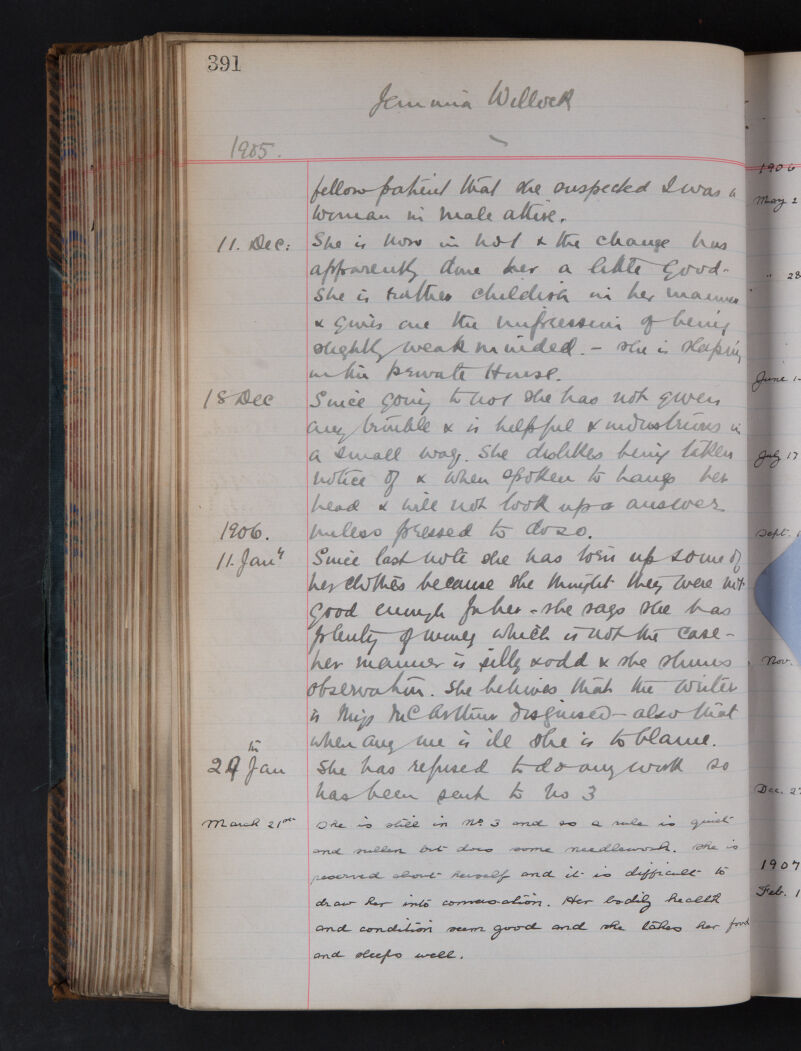 391
Jemima Willock
1905.
fellow patient that she suspected I was a
woman in male attire.
11. Dec: She is now in No1 & the change has
apparently done her a little good -
She is rather childish in her manner
& gives one the impression of being
slightly weak minded. - she is sleeping
in the Private House.
18 Dec Since going to No1 she has not given
any trouble & is helpful & industrious in
a small way. She dislikes being taken
notice of & when spoken to hangs her
head & will not look up or answer
1906. unless pressed to do so.
11. Jany Since last note she has torn up some of
her clothes because she thought they were not
good enough for her - she says she has
plenty of money which is not the case -
her manner is silly & odd & she shuns
observation. She believes that the writer
is Miss McArthur disguised - also that
when any one is ill she is to blame.
29th Jan She has refused to do any work so
has been sent to No 3
March 21st She is still in No. 3 and as a rule is quiet
and sullen but does some needlework. She is
reserved about herself and it is difficult to
draw her into conversation. Her bodily health
and condition seem good and she takes her food
and sleeps well.
1906
May 2
" 28
June 1
July 17
Sept. 1
Nov.
Dec. 2
1907
Feb. 1